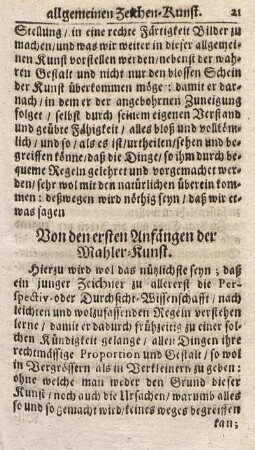 allgemeinen Zeichen-Kunst. 21
Stellung / in eine rechte Färtigkeit Bilder zu
machen / und was wir weiter in dieser allgemei-
nen Kunst vorstellen werden / nebenst der wah-
ren Gestalt und nicht nur den blossen Schein
der Kunst überkommen möge: damit er dar-
nach / in dem er der angebohrnen Zuneigung
folget / selbst durch seinem eigenen Verstand
und geübte Fähigkeit / alles bloß und vollköm-
lich / und so / als es ist / urtheilen / sehen und be-
greiffen könne / daß die Dinge / so ihm durch be-
queme Regeln gelehret und vorgemacht wer-
den / sehr wol mit den natürlichen überein kom-
men: deßwegen wird nöthig seyn / daß wir et-
was sagen
Von den ersten Anfängen der
Mahler-Kunst.
Hierzu wird wol das nützlichste seyn; daß
ein junger Zeichner zu allererst die Per-
spectiv- oder Durchsicht-Wissenschafft / nach
leichten und wolzufassenden Regeln verstehen
lerne / damit er dadurch frühzeitig zu einer sol-
chen Kündigkeit gelange / allen Dingen ihre
rechtmässige Proportion und Gestalt / so wol
in Vergrössern als in Verkleinern zu geben:
ohne welche man weder den Grund dieser
Kunst / noch auch die Ursachen / warumb alles
so und so gemacht wird / keines weges begreiffen
kan;